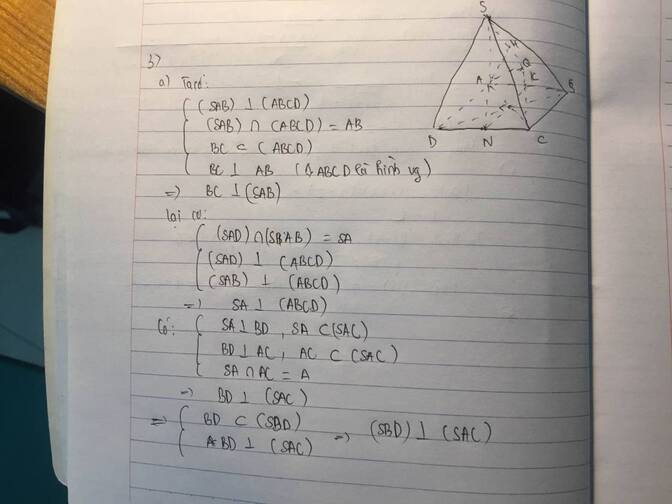 3)
a) Ta có:
(SAB) ⊥ (ABCD)
(SAB) ∩ (ABCD) = AB
BC ⊂ (ABCD)
BC ⊥ AB ( ABCD là hình vg)
=> BC ⊥ (SAB)
Lại có:
(SAD) ∩ (SAB) = SA
(SAD) ⊥ (ABCD)
(SAB) ⊥ (ABCD)
=> SA ⊥ (ABCD)
Có: SA ⊥ BD , SA ⊂ (SAC)
BD ⊥ AC , AC ⊂ (SAC)
SA ∩ AC = A
=> BD ⊥ (SAC)
=> BD ⊂ (SBD)
BD ⊥ (SAC) => (SBD) ⊥ (SAC)
S
M
A K B
D N C